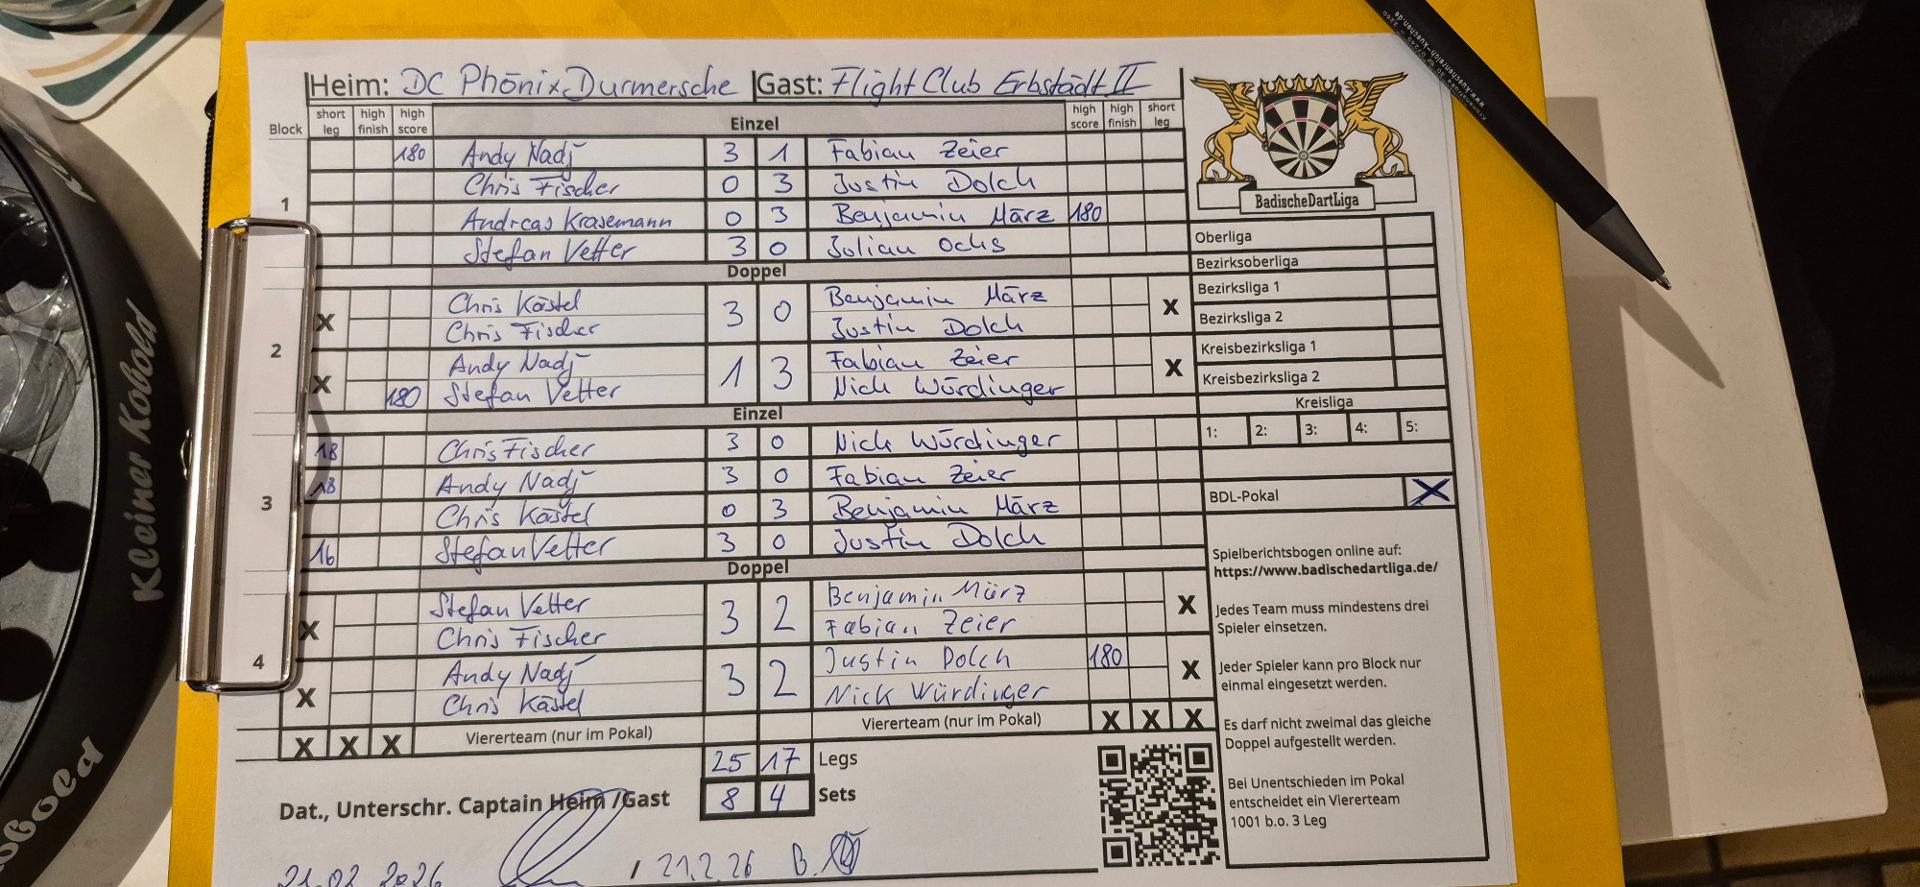 Heim: DC Phönix Durmersche Gast: Flight Club Erbstädt II
Block short leg high finish high score Einzel high score high finish short leg
1
180 Andy Nadj 3 1 Fabian Zeier
Chris Fischer 0 3 Justin Dolch
Andreas Krasemann 0 3 Benjamin März 180
Stefan Vetter 3 0 Julian Ochs
Doppel
2
X Chris Kästel 3 0 Benjamin März X
Chris Fischer Justin Dolch
X Andy Nadj 1 3 Fabian Zeier X
180 Stefan Vetter Nick Würdinger
Einzel
3
18 Chris Fischer 3 0 Nick Würdinger
18 Andy Nadj 3 0 Fabian Zeier
Chris Kästel 0 3 Benjamin März
16 Stefan Vetter 3 0 Justin Dolch
Doppel
4
X Stefan Vetter 3 2 Benjamin März X
Chris Fischer Fabian Zeier
X Andy Nadj 3 2 Justin Dolch 180 X
Chris Kästel Nick Würdinger
X X X Viererteam (nur im Pokal) Viererteam (nur im Pokal) X X X
25 17 Legs
8 4 Sets
Dat., Unterschr. Captain Heim /Gast
21.02.2026 / 21.2.26 B.
BadischeDartLiga
Oberliga
Bezirksoberliga
Bezirksliga 1
Bezirksliga 2
Kreisbezirksliga 1
Kreisbezirksliga 2
Kreisliga
1: 2: 3: 4: 5:
BDL-Pokal X
Spielberichtsbogen online auf:
https://www.badischedartliga.de/
Jedes Team muss mindestens drei
Spieler einsetzen.
Jeder Spieler kann pro Block nur
einmal eingesetzt werden.
Es darf nicht zweimal das gleiche
Doppel aufgestellt werden.
Bei Unentschieden im Pokal
entscheidet ein Viererteam
1001 b.o. 3 Leg
Kleiner Kobold
obold